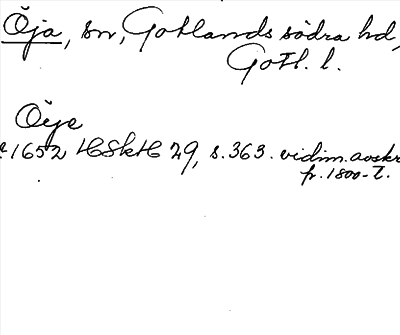 Öja, sn, Gotlands södra hd,
Gotl. l.
Öye
1652 HSkH 29, s. 363. vidim. avskr
fr. 1800-t.